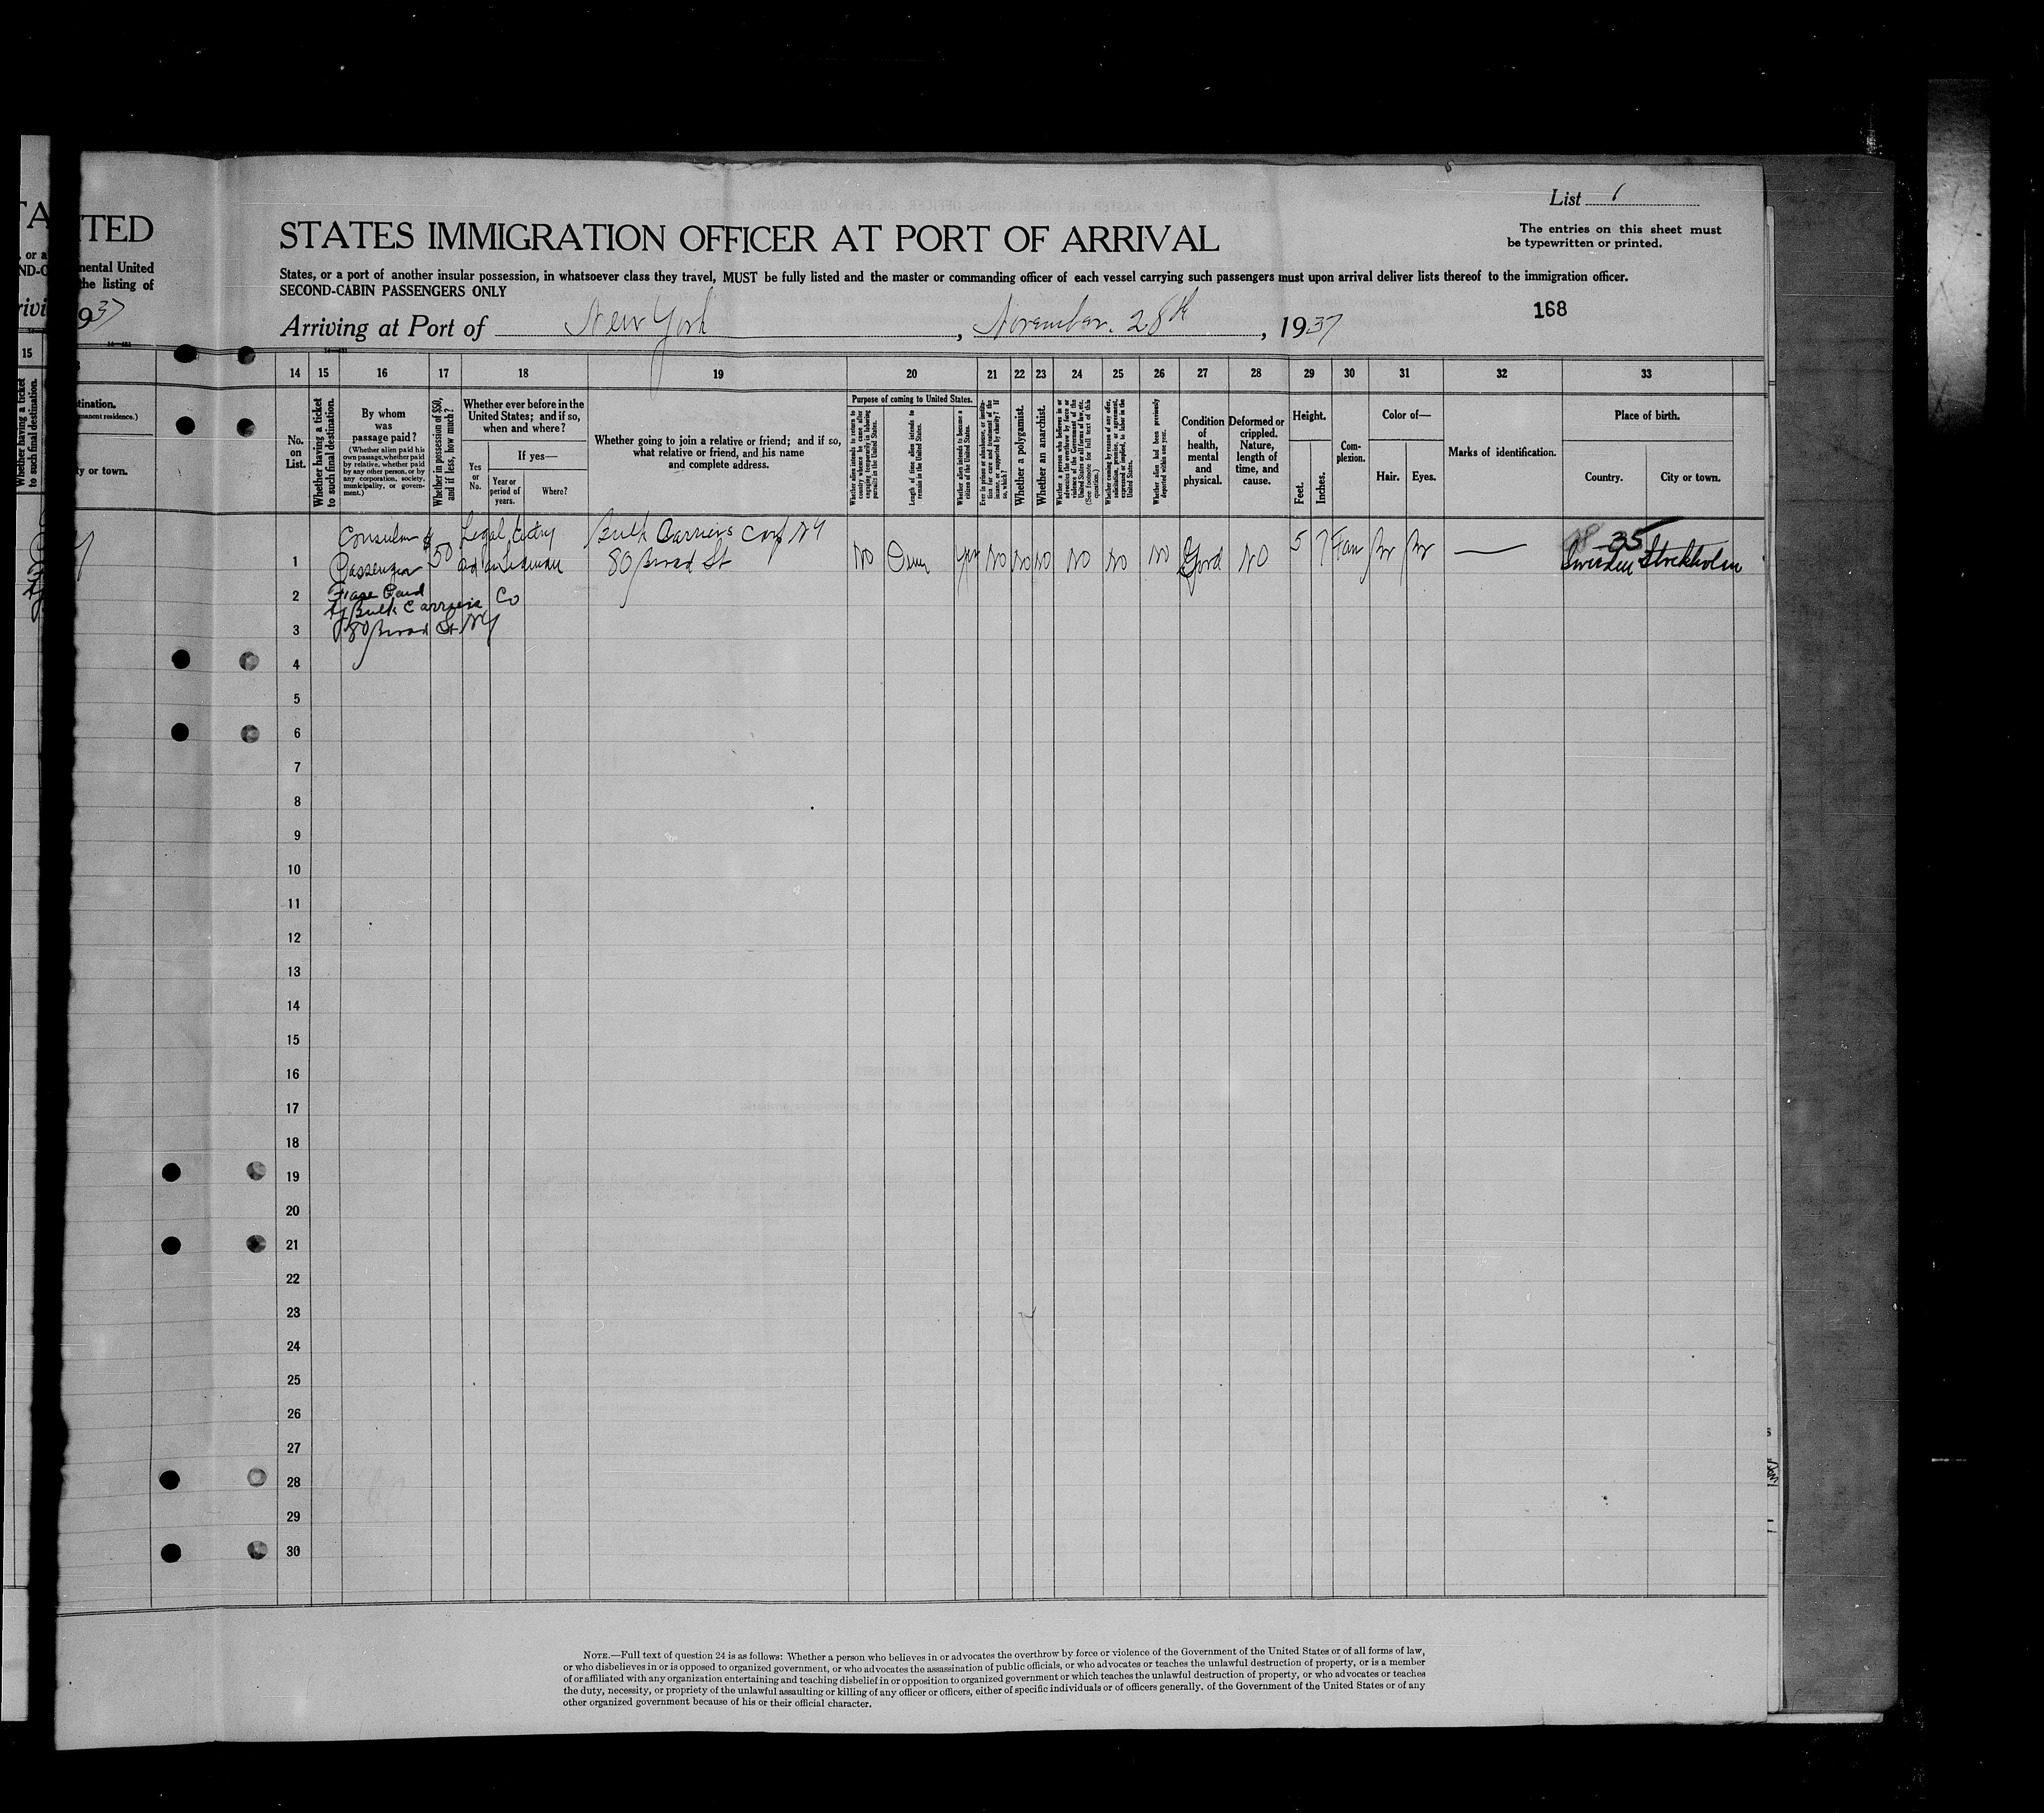 List 1
The entries on this sheet must
be typewritten or printed.
TED
STATES IMMIGRATION OFFICER AT PORT OF ARRIVAL
mental United
the listing of
States, or a port of another insular possession, in whatsoever class they travel, MUST be fully listed and the master or commanding officer of each vessel carrying such passengers must upon arrival deliver lists thereof to the immigration officer.
SECOND-CABIN PASSENGERS ONLY
168
937
Arriving at Port of New York, November. 28th, 1937
15
14 15 16 17 18 19 20 21 22 23 24 25 26 27 28 29 30 31 32 33
Whether having a ticket
to such final destination.
tination.
manent residence.)
ty or town.
No.
on
List.
Whether having a ticket
to such final destination.
By whom
was
passage paid?
(Whether alien paid his
own passage, whether paid
by relative, whether paid
by any other person, or by
any corporation, society,
municipality, or govern-
ment.)
Whether in possession of $50,
and if less, how much?
Whether ever before in the
United States; and if so,
when and where?
Yes
or
No.
If yes—
Year or
period of
years.
Where?
Whether going to join a relative or friend; and if so,
what relative or friend, and his name
and complete address.
Purpose of coming to United States.
Whether alien intends to return to
country whence he came after
engaging temporarily in laboring
pursuits in the United States.
Length of time alien intends to
remain in the United States.
Whether alien intends to become a
citizen of the United States.
Ever in prison or almshouse, or institu-
tion for care and treatment of the
insane, or supported by charity? If
so, which?
Whether a polygamist.
Whether an anarchist.
Whether a person who believes in or
advocates the overthrow by force or
violence of the Government of the
United States or all forms of law, etc.
(See footnote for full text of this
question.)
Whether coming by reason of any offer,
solicitation, promise, or agreement,
expressed or implied, to labor in the
United States.
Whether alien had been previously
deported within one year.
Condition
of
health,
mental
and
physical.
Deformed or
crippled.
Nature,
length of
time, and
cause.
Height.
Feet.
Inches.
Com-
plexion.
Color of—
Hair.
Eyes.
Marks of identification.
Place of birth.
Country.
City or town.
Consular $ Legal Entry Bulk Carriers Corp NY 35
1 Passenger 50 80 Broad St No Yes No No No No No No Good NO 5 7 Br Br — Sweden Stockholm
2 Paid
by Bulk Carriers Co
3 80 Broad St NY
4
5
6
7
8
9
10
11
12
13
14
15
16
17
18
19
20
21
22
23
24
25
26
27
28
29
30
NOTE.—Full text of question 24 is as follows: Whether a person who believes in or advocates the overthrow by force or violence of the Government of the United States or of all forms of law,
or who disbelieves in or is opposed to organized government, or who advocates the assassination of public officials, or who advocates or teaches the unlawful destruction of property, or is a member
of or affiliated with any organization entertaining and teaching disbelief in or opposition to organized government or which teaches the unlawful destruction of property, or who advocates or teaches
the duty, necessity, or propriety of the unlawful assaulting or killing of any officer or officers, either of specific individuals or of officers generally. of the Government of the United States or of any
other organized government because of his or their official character.